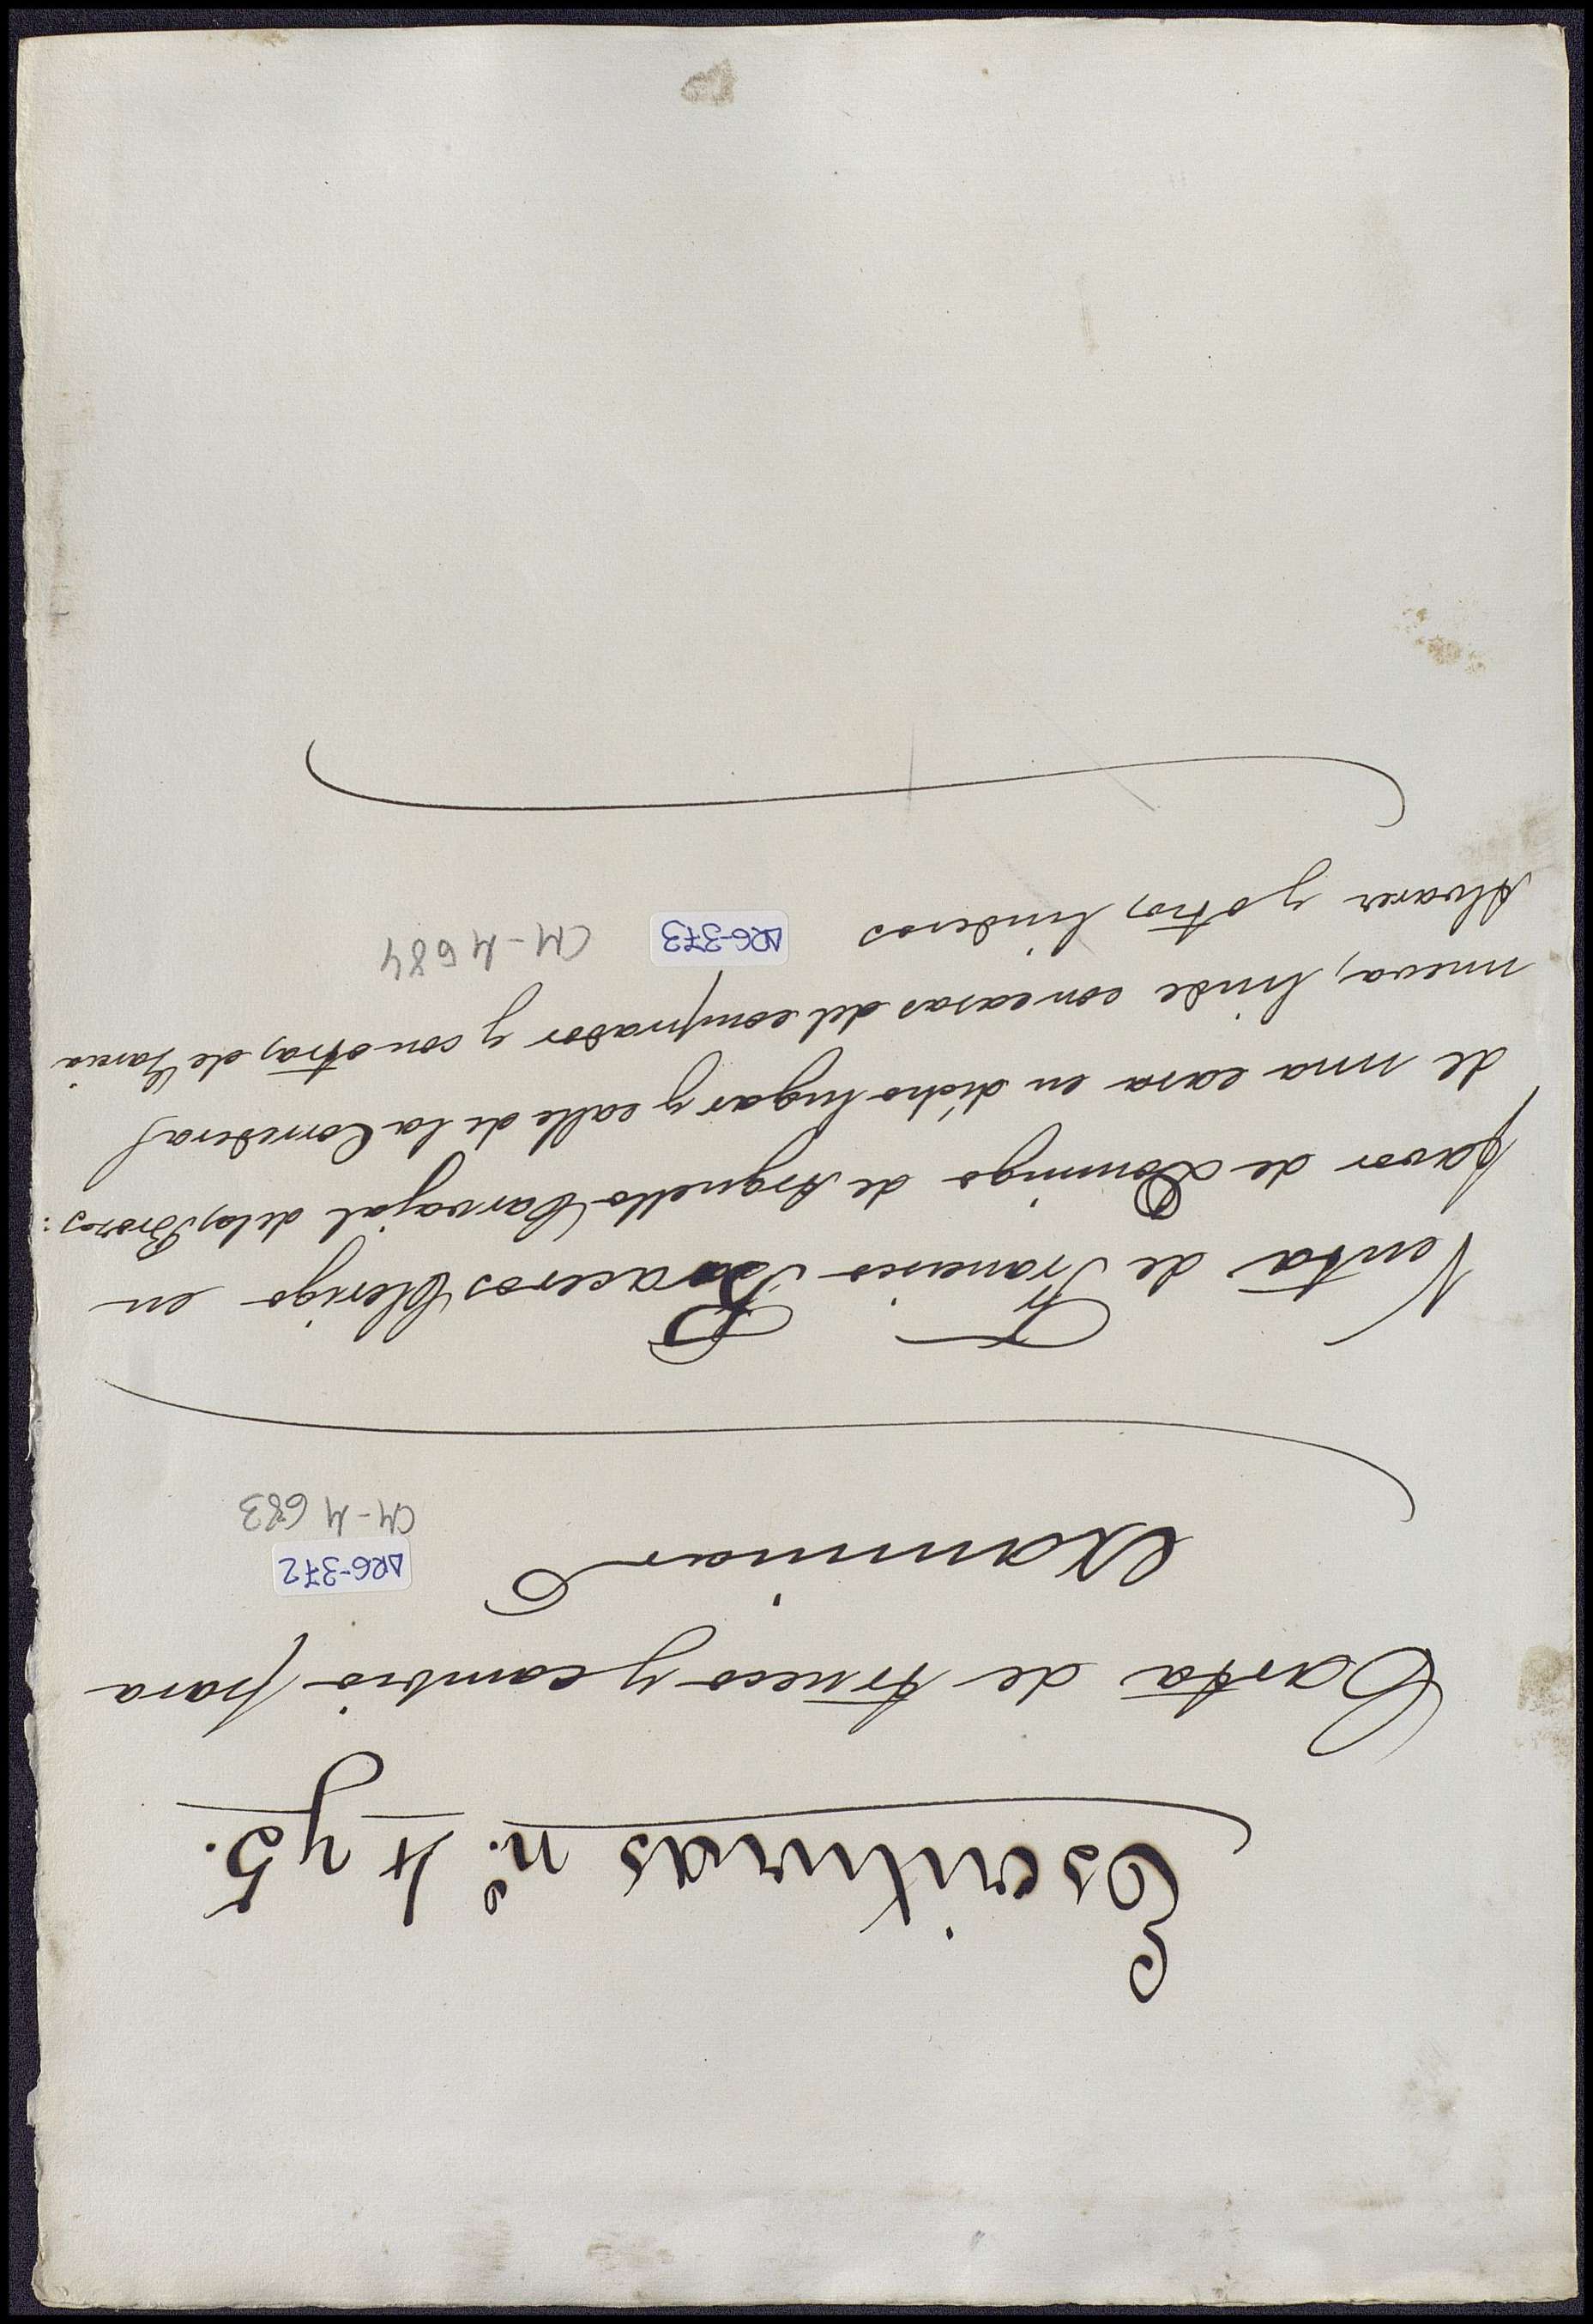 Escrituras n.º 4 y 5.
Carta de trueco y cambio para
examinar
ARG-372
CM-4683
Venta de Francisco Braceros Clerigo en
favor de Domingo de Arguello Carvajal de las
de una casa en dicho lugar y calle de la Corredera
nueva, linde con casas del comprador y con otras de Garcia
Alvarez y otros linderos
ARG-373
CM-4684